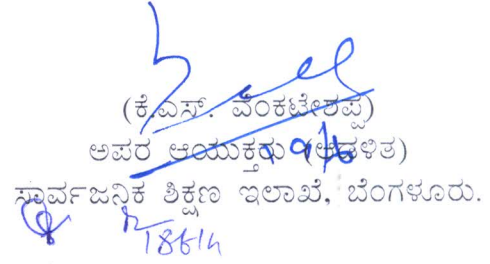 (ಕೆ.ಎಸ್. ವೆಂಕಟೇಶಪ್ಪ)
ಅಪರ ಆಯುಕ್ತರು (ಆಡಳಿತ)
ಸಾರ್ವಜನಿಕ ಶಿಕ್ಷಣ ಇಲಾಖೆ, ಬೆಂಗಳೂರು.